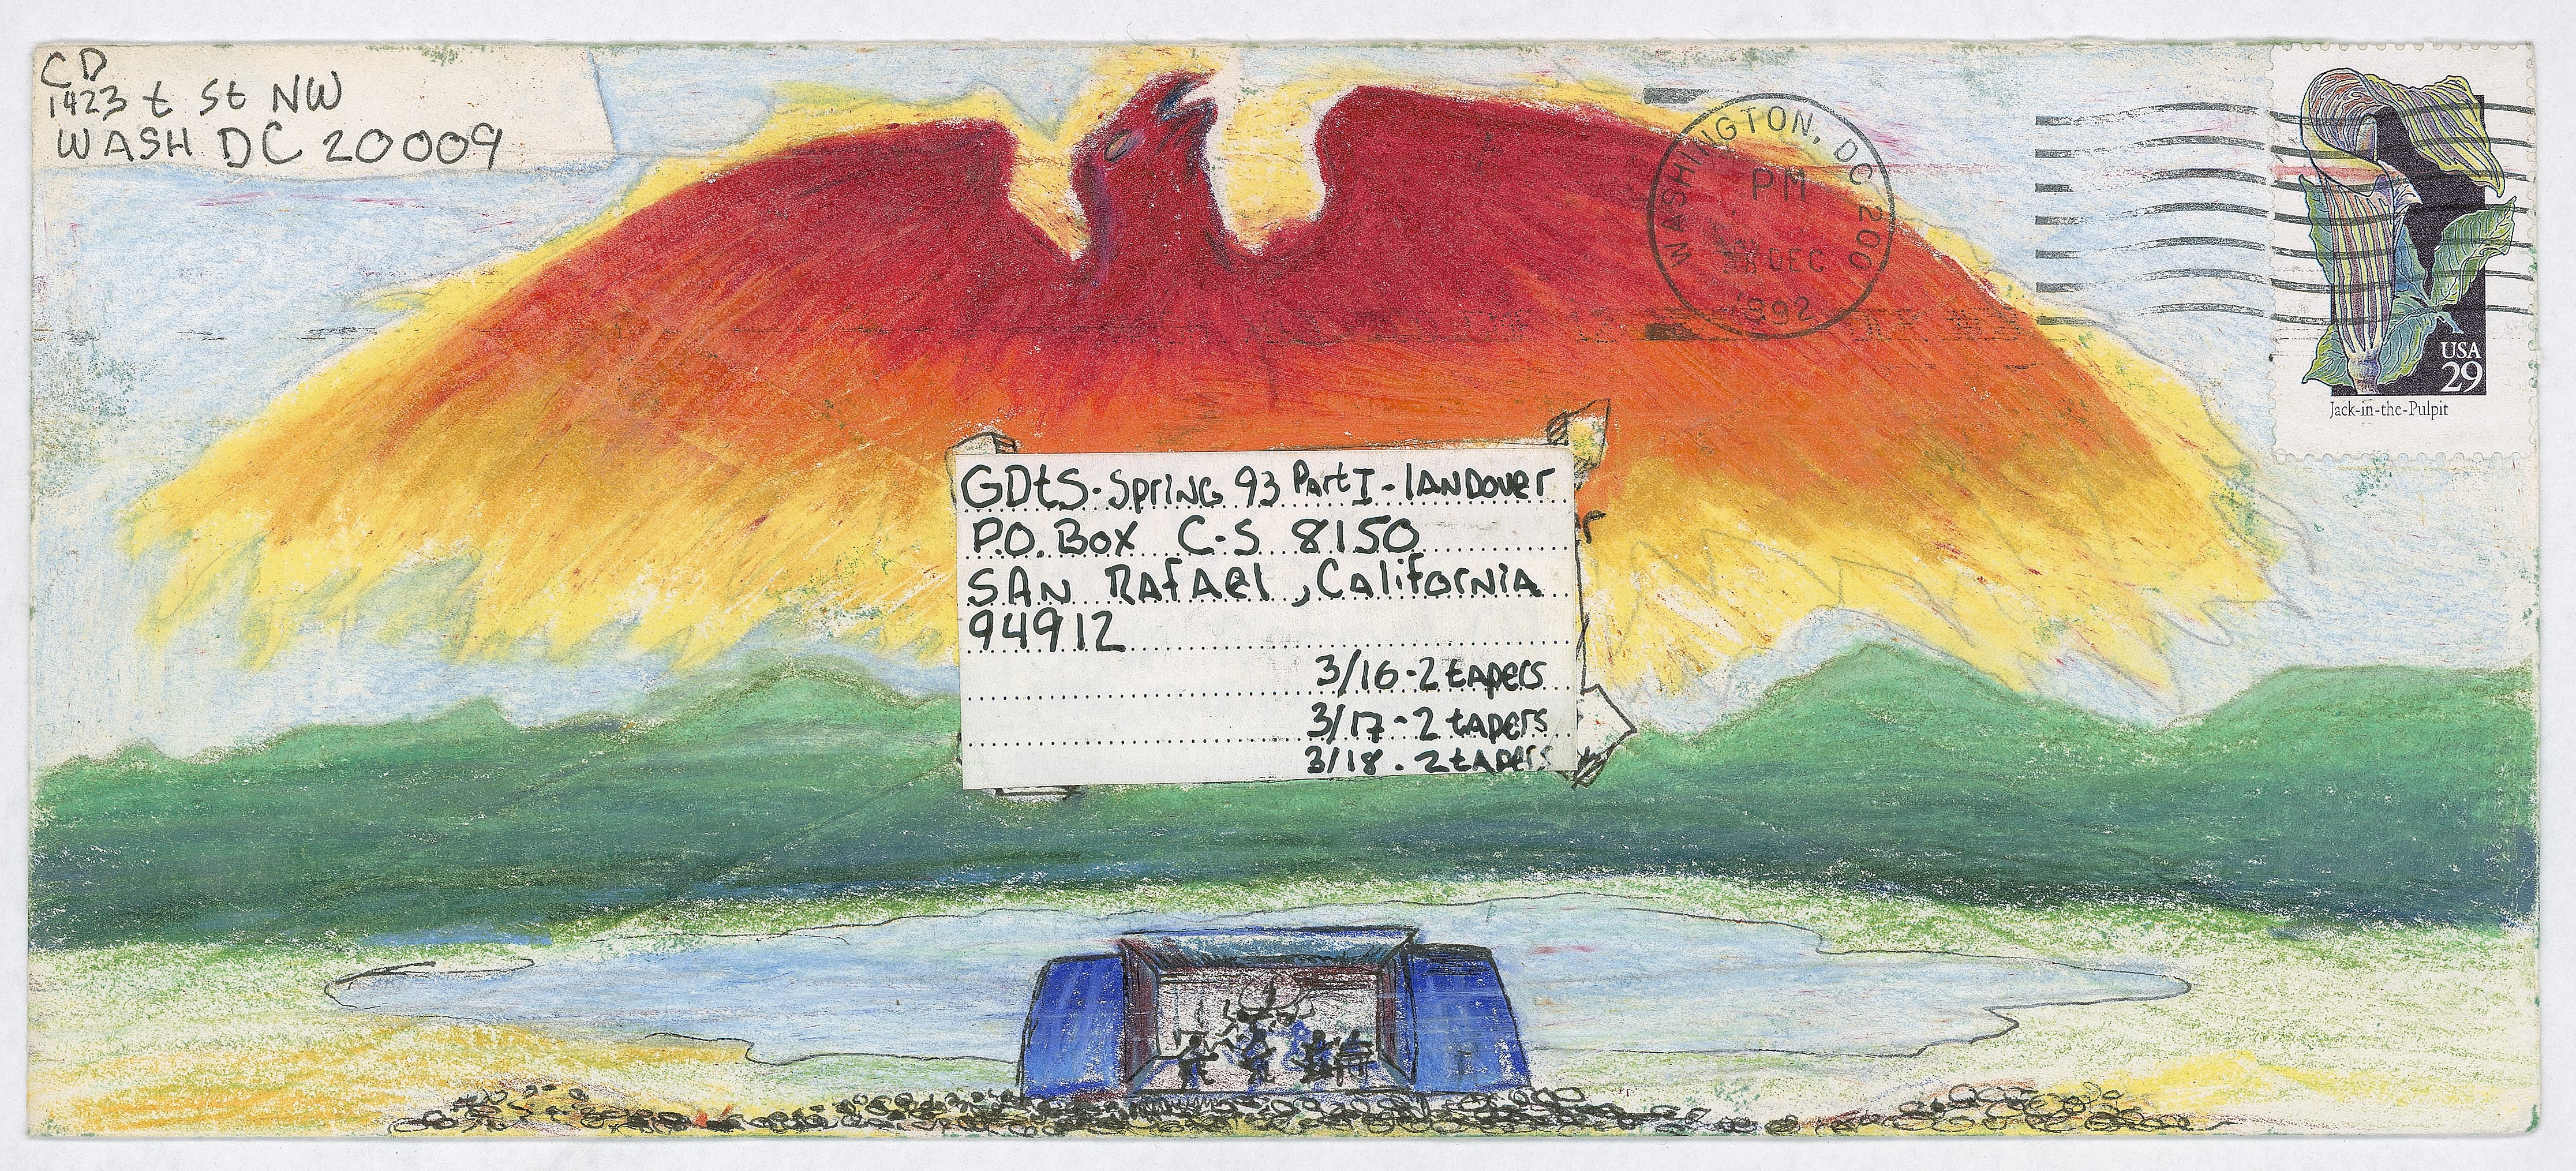 CD
1423 t St NW
WASH DC 20009
WASHINGTON, DC 200
PM
DEC
1992
USA
29
Jack-in-the-Pulpit
GDtS-Spring 93 Part I-lANDover
P.O. Box C-S 8150
SAN RAfAel, California
94912
3/16-2 tApers
3/17-2 tApers
3/18-2 tApers